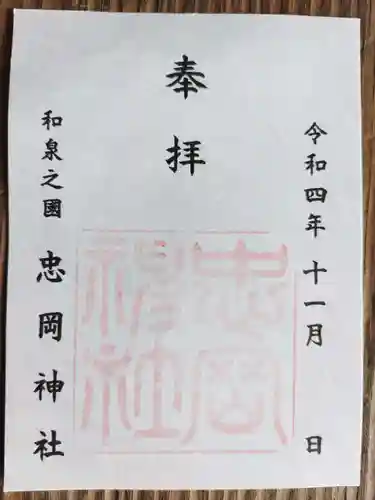 奉拝
令和四年十一月　日
和泉之國　忠岡神社
忠岡
神社